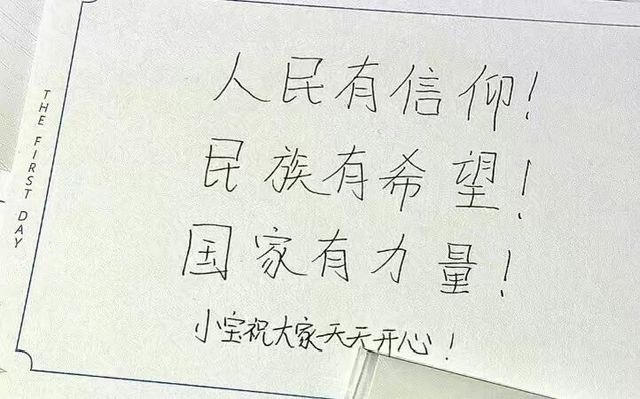 THE FIRST DAY
人民有信仰!
民族有希望!
国家有力量!
小宝祝大家天天开心!